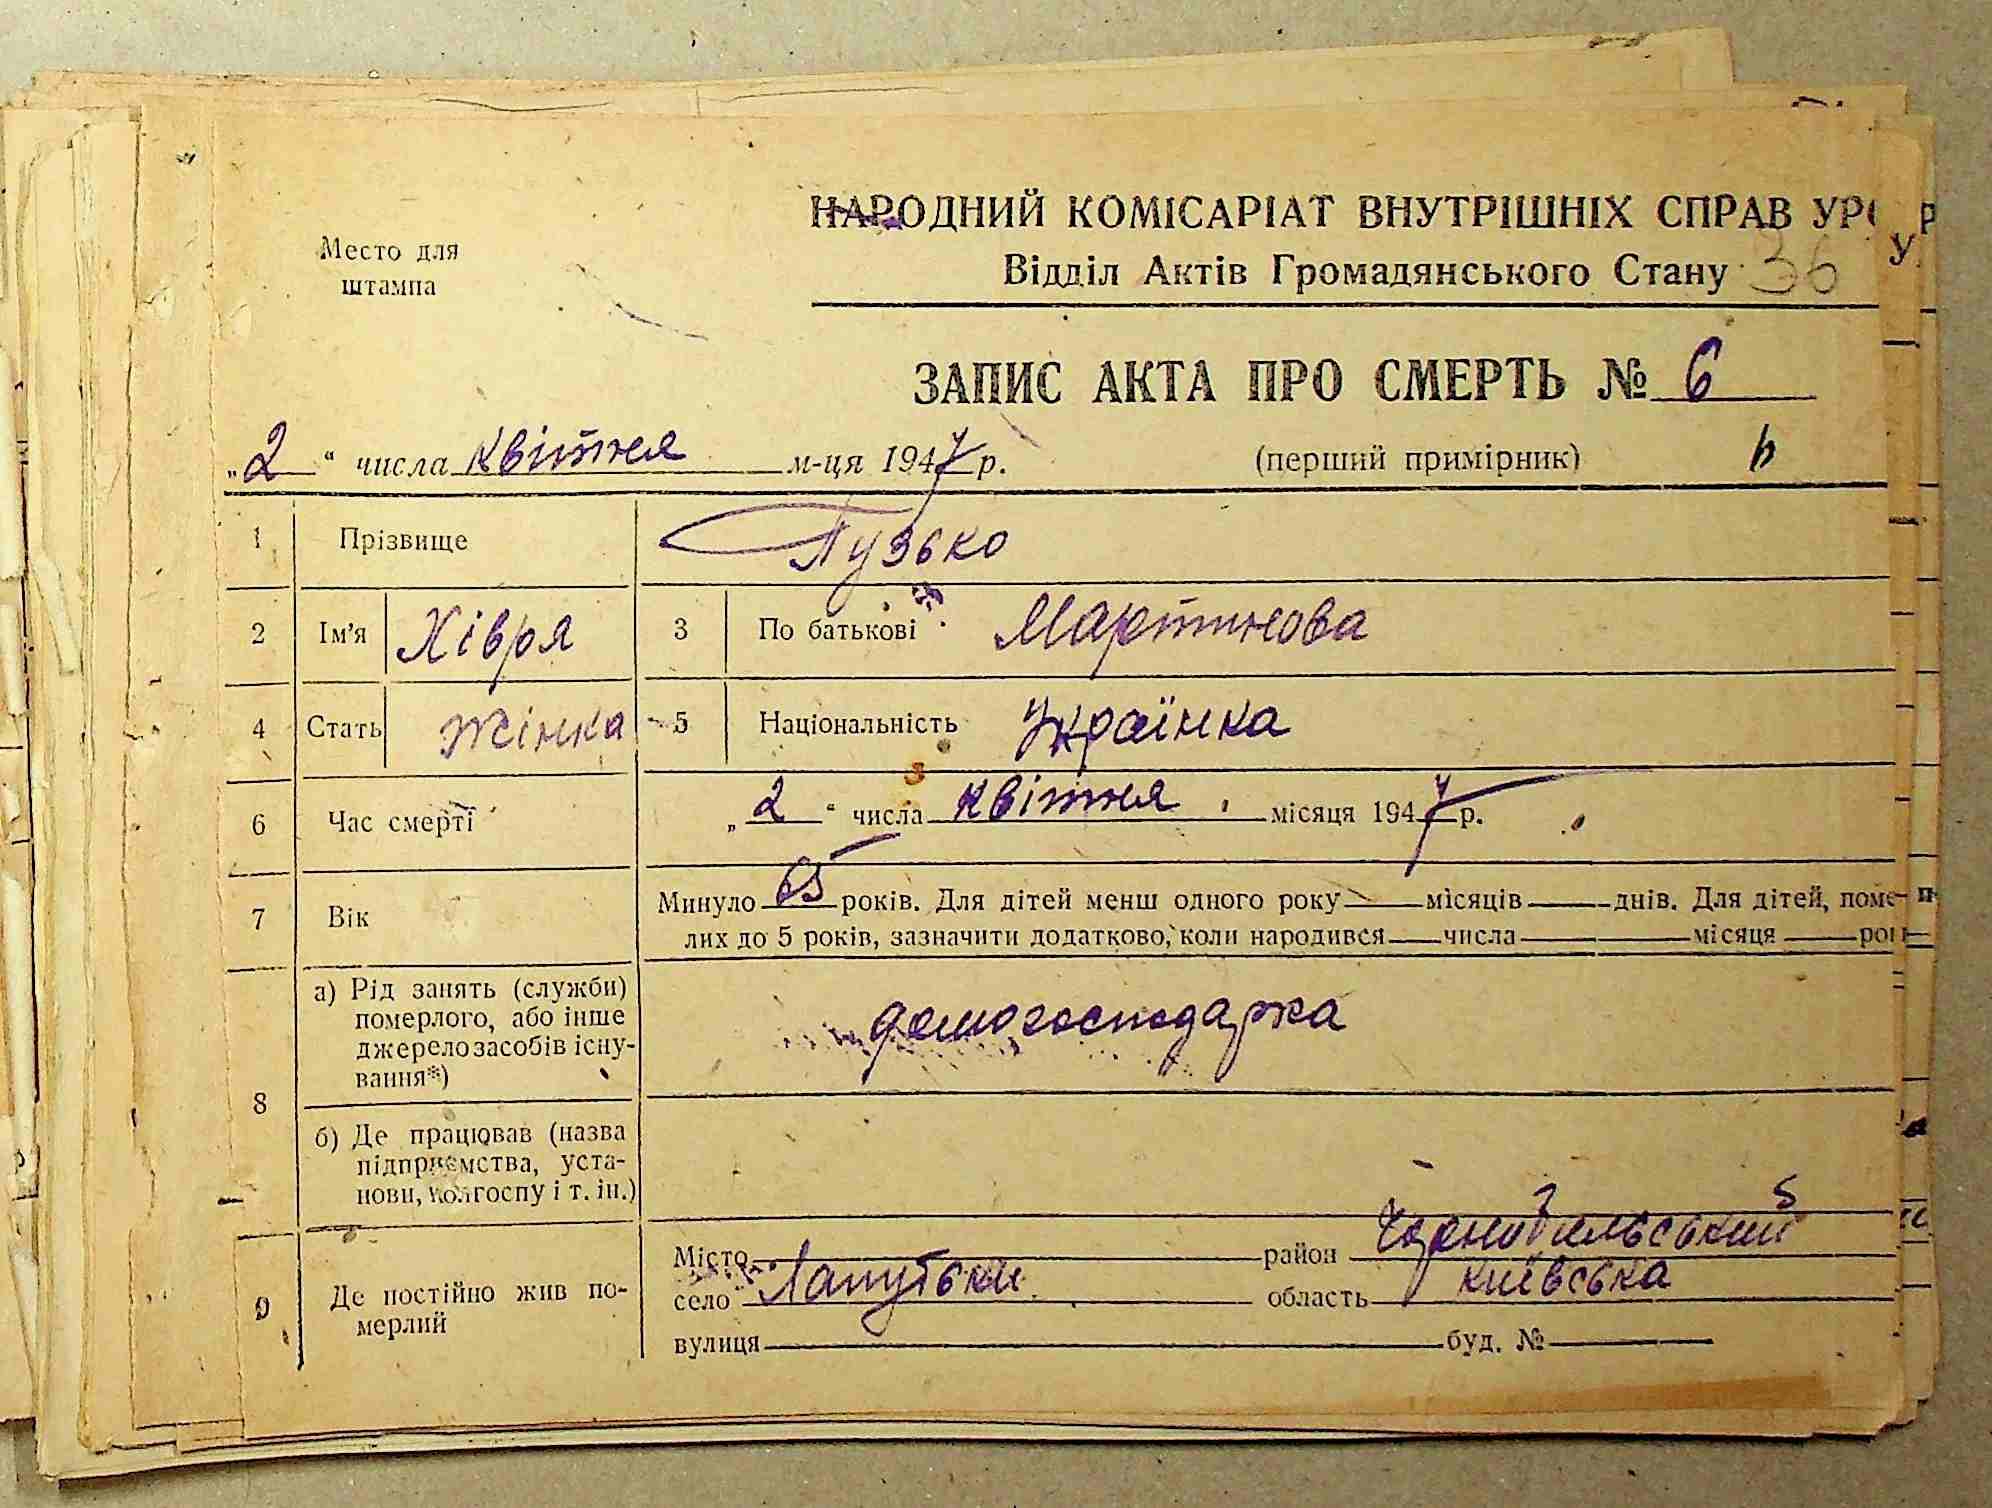 Место для
штампа
НАРОДНИЙ КОМІСАРІАТ ВНУТРІШНІХ СПРАВ УРС
Відділ Актів Громадянського Стану 36
ЗАПИС АКТА ПРО СМЕРТЬ № 6
„2“ числа квітня м-ця 1947 р. (перший примірник)
1 Прізвище Пузько
2 Ім'я Хівря 3 По батькові Мартинова
4 Стать Жінка 5 Національність Українка
6 Час смерті „2“ числа квітня місяця 1947 р.
7 Вік Минуло 65 років. Для дітей менш одного року — місяців — днів. Для дітей, поме-
лих до 5 років, зазначити додатково, коли народився — числа — місяця — рок
8 а) Рід занять (служби)
померлого, або інше
джерело засобів існу-
вання*) домогосподарка
б) Де працював (назва
підприємства, уста-
нови, колгоспу і т. ін.)
9 Де постійно жив по-
мерлий
Місто район Чорнобильський
село Лапутьки область київська
вулиця буд. №